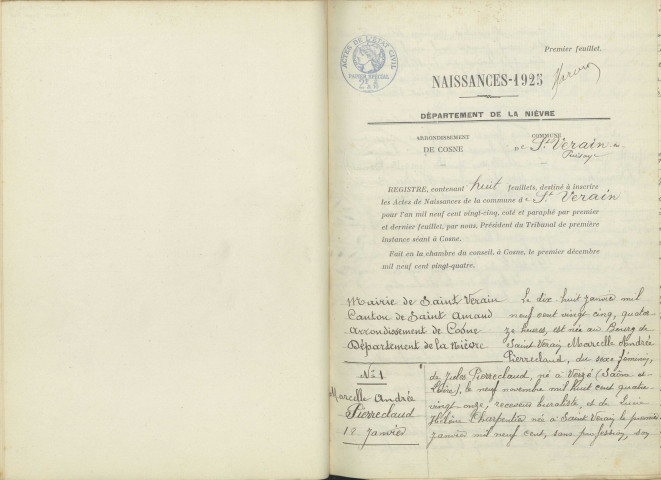 Premier feuillet.
ACTES DE L'ÉTAT CIVIL
PAPIER SPÉCIAL
NAISSANCES-1925
DÉPARTEMENT DE LA NIÈVRE
ARRONDISSEMENT
DE COSNE
COMMUNE
de St Verain en
Puisaye
REGISTRE, contenant huit feuillets, destiné à inscrire
les Actes de Naissances de la commune de St Verain
pour l'an mil neuf cent vingt-cinq, coté et paraphé par premier
et dernier feuillet, par nous, Président du Tribunal de première
instance séant à Cosne.
Fait en la chambre du conseil, à Cosne, le premier décembre
mil neuf cent vingt-quatre.
Mairie de Saint Verain
Canton de Saint Amand
Arrondissement de Cosne
Département de la Nièvre
No 1
Marcelle Andrée
Pierreclaud
18 Janvier
Le dix huit janvier mil
neuf cent vingt cinq, quator-
ze heures, est née au Bourg de
Saint Verain Marcelle Andrée
Pierreclaud, du sexe féminin,
de Jules Pierreclaud, né à Verzé (Saône et
Loire), le neuf novembre mil huit cent quatre
vingt onze, receveur buraliste, et de Lucie
Hélène Charpentier née à Saint Verain le premier
janvier mil neuf cent, sans profession, son